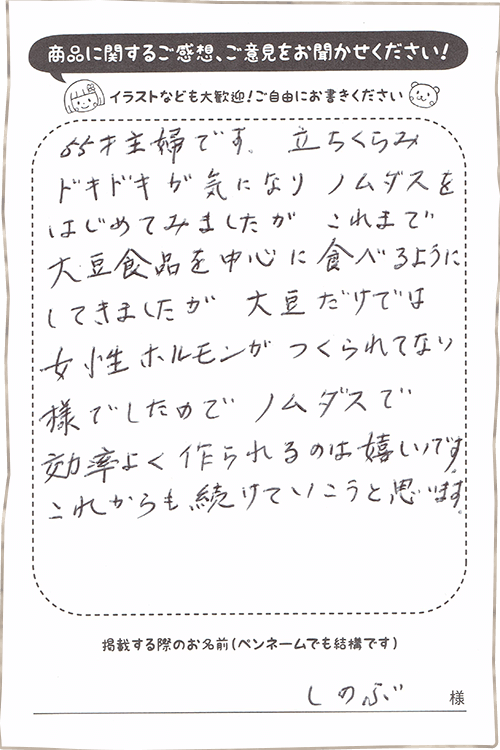 商品に関するご感想、ご意見をお聞かせください!
イラストなども大歓迎!ご自由にお書きください
55才主婦です。 立ちくらみ
ドキドキが気になり ノムダスを
はじめてみましたが これまで
大豆食品を中心に食べるように
してきましたが 大豆だけでは
女性ホルモンが つくられてない
様でしたので ノムダスで
効率よく作られるのは嬉しいです。
これからも続けていこうと思います。
掲載する際のお名前(ペンネームでも結構です)
しのぶ 様